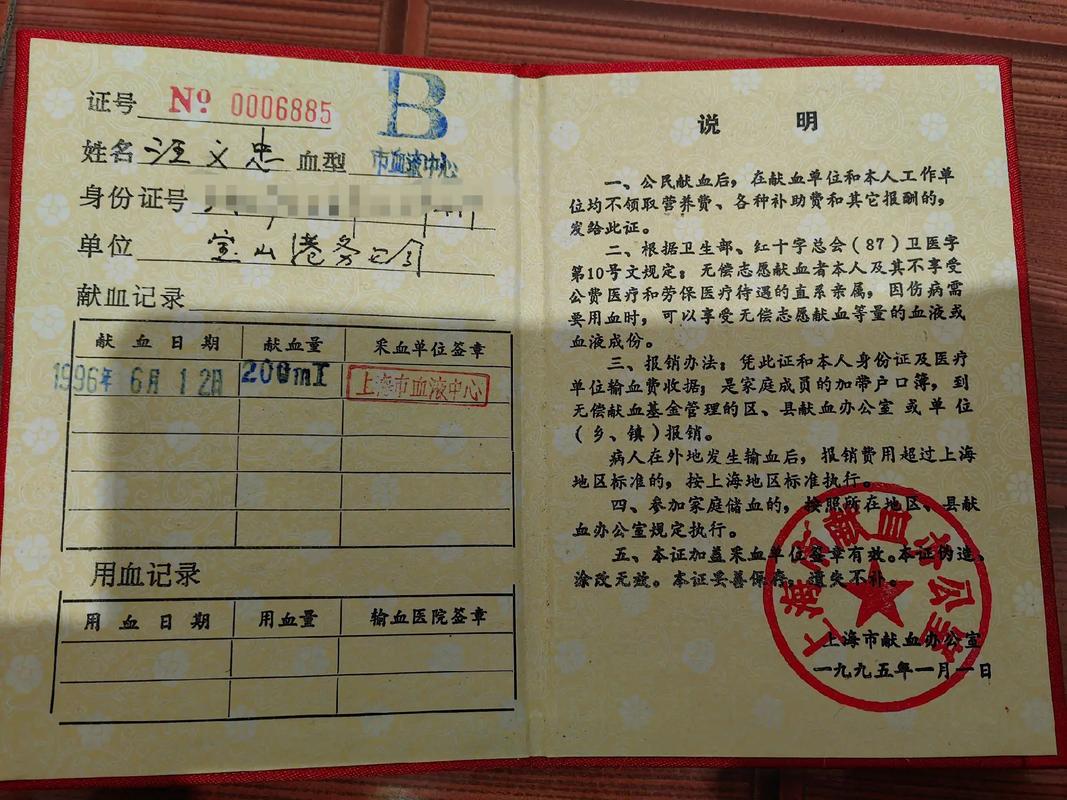 证号 № 0006885
B
市血液中心
姓名 汪文忠 血型
身份证号
单位 宝山港务公司
献血记录
献血日期 献血量 采血单位签章
1996年6月12日 200mI 上海市血液中心
用血记录
用血日期 用血量 输血医院签章
说 明
一、公民献血后，在献血单位和本人工作单
位均不领取营养费、各种补助费和其它报酬的，
发给此证。
二、根据卫生部、红十字总会（87）卫医字
第10号文规定；无偿志愿献血者本人及其不享受
公费医疗和劳保医疗待遇的直系亲属，因伤病需
要用血时，可以享受无偿志愿献血等量的血液或
血液成份。
三、报销办法：凭此证和本人身份证及医疗
单位输血费收据；是家庭成员的加带户口簿，到
无偿献血基金管理的区、县献血办公室或单位
（乡、镇）报销。
病人在外地发生输血后，报销费用超过上海
地区标准的，按上海地区标准执行。
四、参加家庭储血的，按照所在地区、县献
血办公室规定执行。
五、本证加盖采血单位签章有效。本证伪造、
涂改无效。本证妥善保存，遗失不补。
上海市献血办公室
上海市献血办公室
一九九五年一月一日